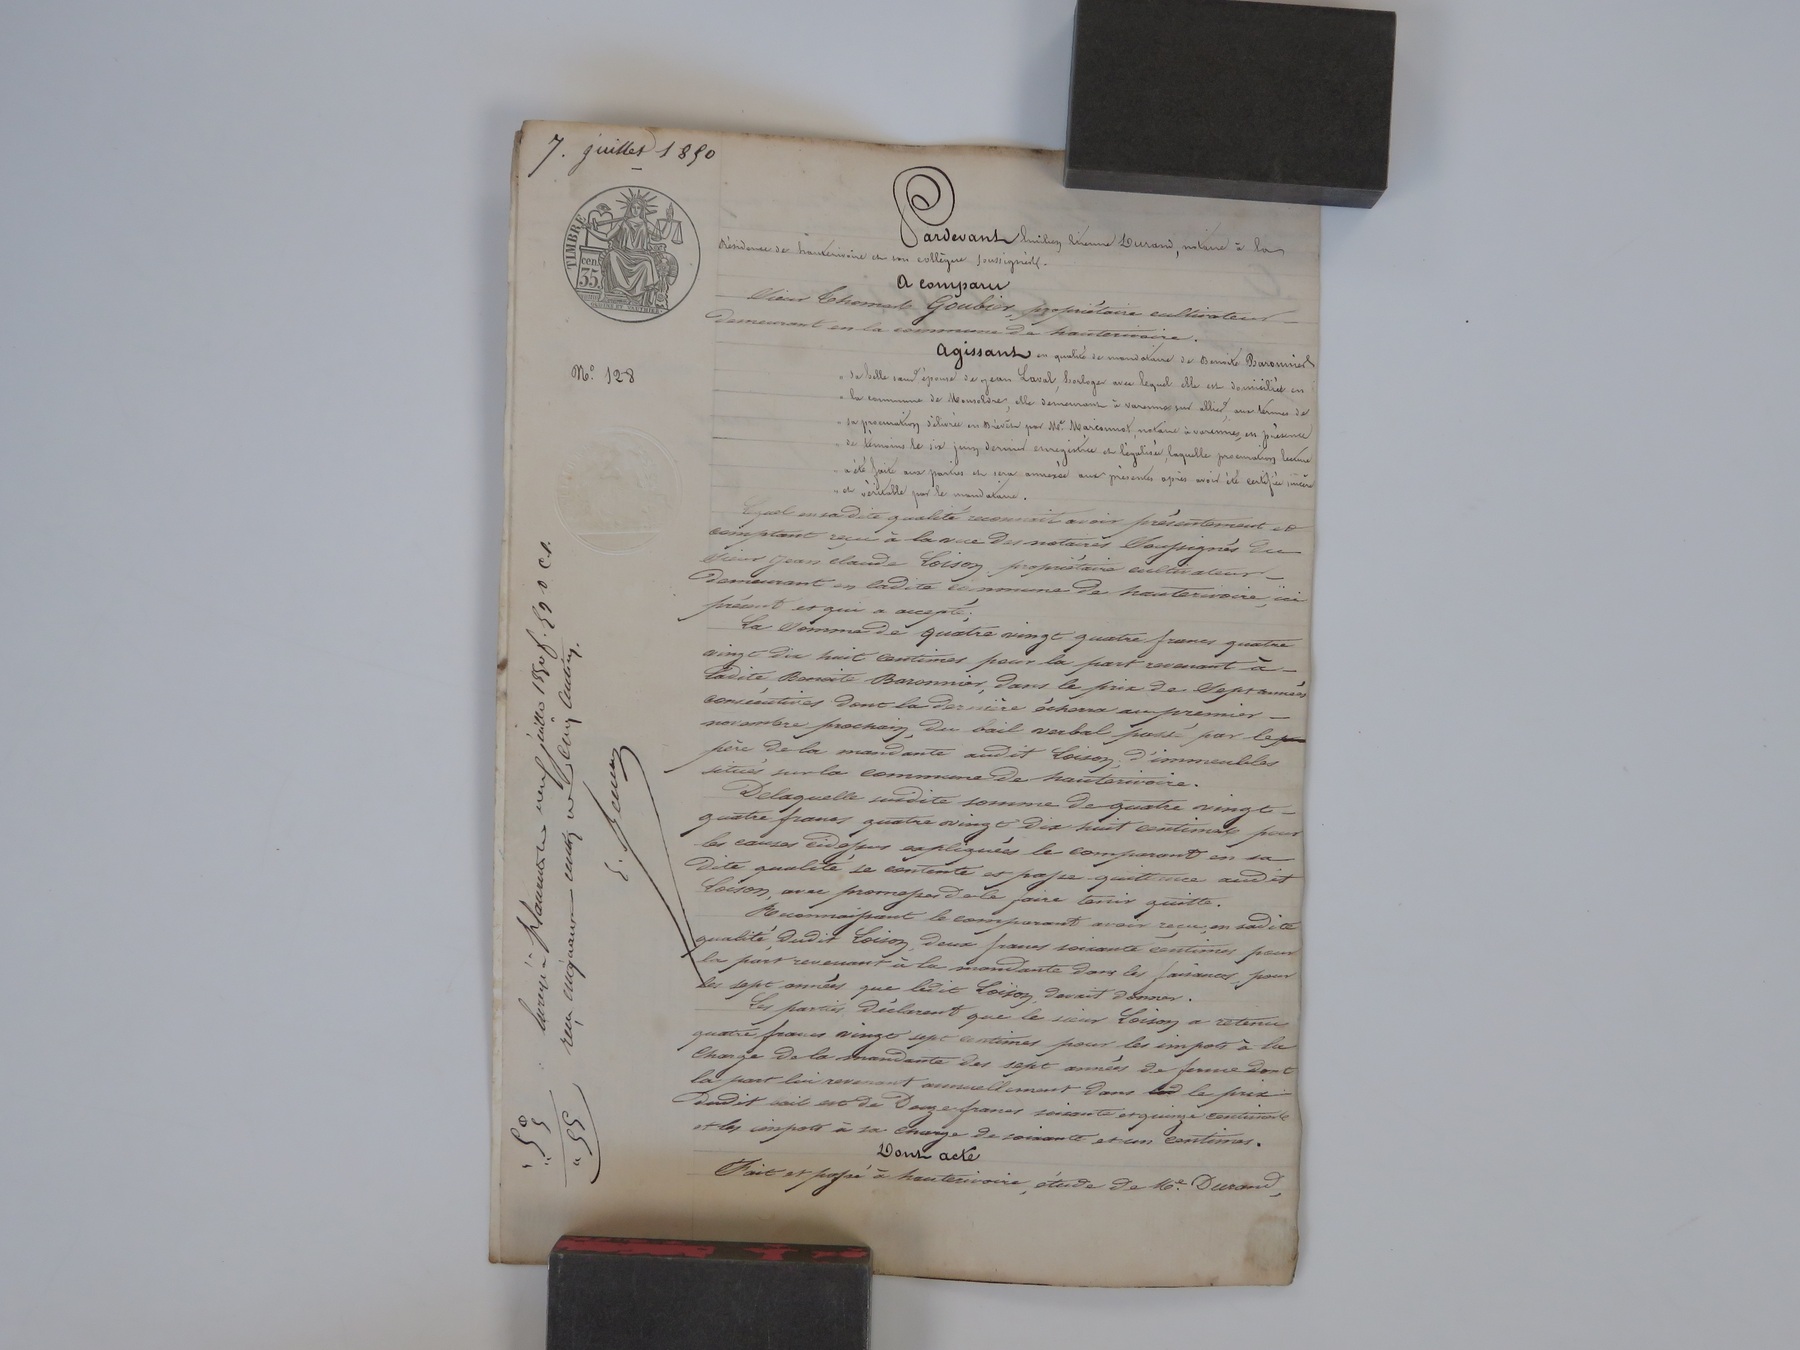 7. juillet 1850
TIMBRE
cent.
35
N.° 128
Pardevant Emilien Etienne Durand, notaire à la
résidence de hauterivoire et son collègue soussignés.
A comparu
Sieur Thomas Goubier, propriétaire cultivateur
demeurant en la commune de hauterivoire.
Agissant en qualité de mandataire de Benoite Baronnier
" sa belle sœur épouse de jean Laval, horloger avec lequel elle est domiciliée en
" la commune de, elle demeurant à varennes sur allier, aux termes de
" sa procuration délivrée en Brevêt par Me Marconnot, notaire à varennes, en présence
" de témoins le six juin dernier enregistrée et légalisée, laquelle procuration lecture
" a été faite aux parties et sera annexée aux présentes après avoir été certifiée sincère
" et véritable par le mandataire.
Lequel en sa dite qualité reconnait avoir présentement et
comptant reçu à la vue des notaires Soussignés du
sieur jean claude Loison, propriétaire cultivateur
demeurant en ladite commune de hauterivoire, ici
présent et qui a accepté;
La Somme de quatre vingt quatre francs quatre
vingt dix huit centimes pour la part revenant à
ladite Benoite Baronnier, dans le prix de Sept années
consécutives dont la dernière échera au premier
novembre prochain, du bail verbal passé par le
père de la mandante audit Loison, d'immeubles
situés sur la commune de hauterivoire.
Delaquelle susdite somme de quatre vingt
quatre francs quatre vingt dix huit centimes pour
les causes cidessus expliquées le comparant en sa
dite qualité se contente et passe quittance audit
Loison, avec promesses de le faire tenir quitte.
Reconnaissant le comparant avoir reçu, en sadite
qualité, dudit Loison, deux francs soixante centimes pour
la part revenant à la mandante dans les faisances, pour
les sept années que ledit Loison, devait donner.
Les parties déclarent que le sieur Loison a retenu
quatre francs vingt sept centimes pour les impots à la
charge de la mandante des sept années de ferme dont
la part lui revenant annuellement dans le prix
dudit bail est de Douze francs soixante et quinze centimes
et les impots à sa charge de soixante et un centimes.
Dont acte
Fait et passé à hauterivoire, étude de Me. Durand,
neuf juillet 1850 f.
reçu cinquante
" 50
" 5
" 55